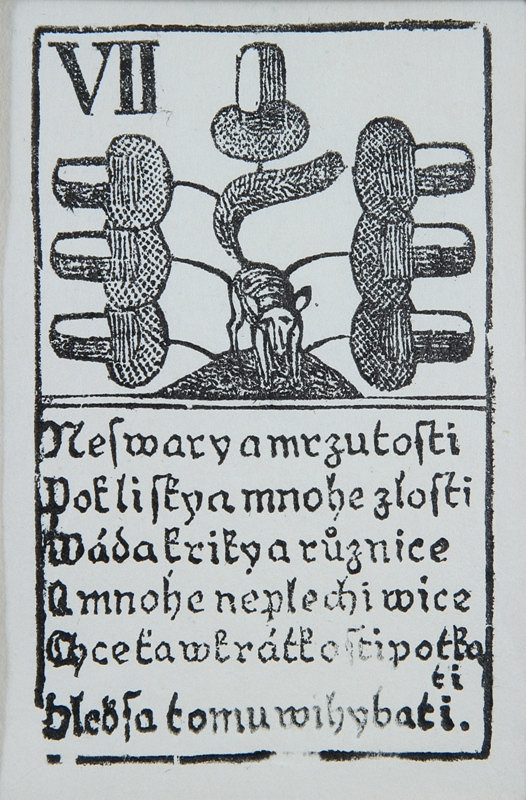 VII
Neſwary a mrzutoſti
Pokliſky a mnohe zloſti
Wáda kriky a různice
A mnohe neplechi wice
Chce ťa w krátkoſti potka
ti
Hleď ſa tomu wihybati.